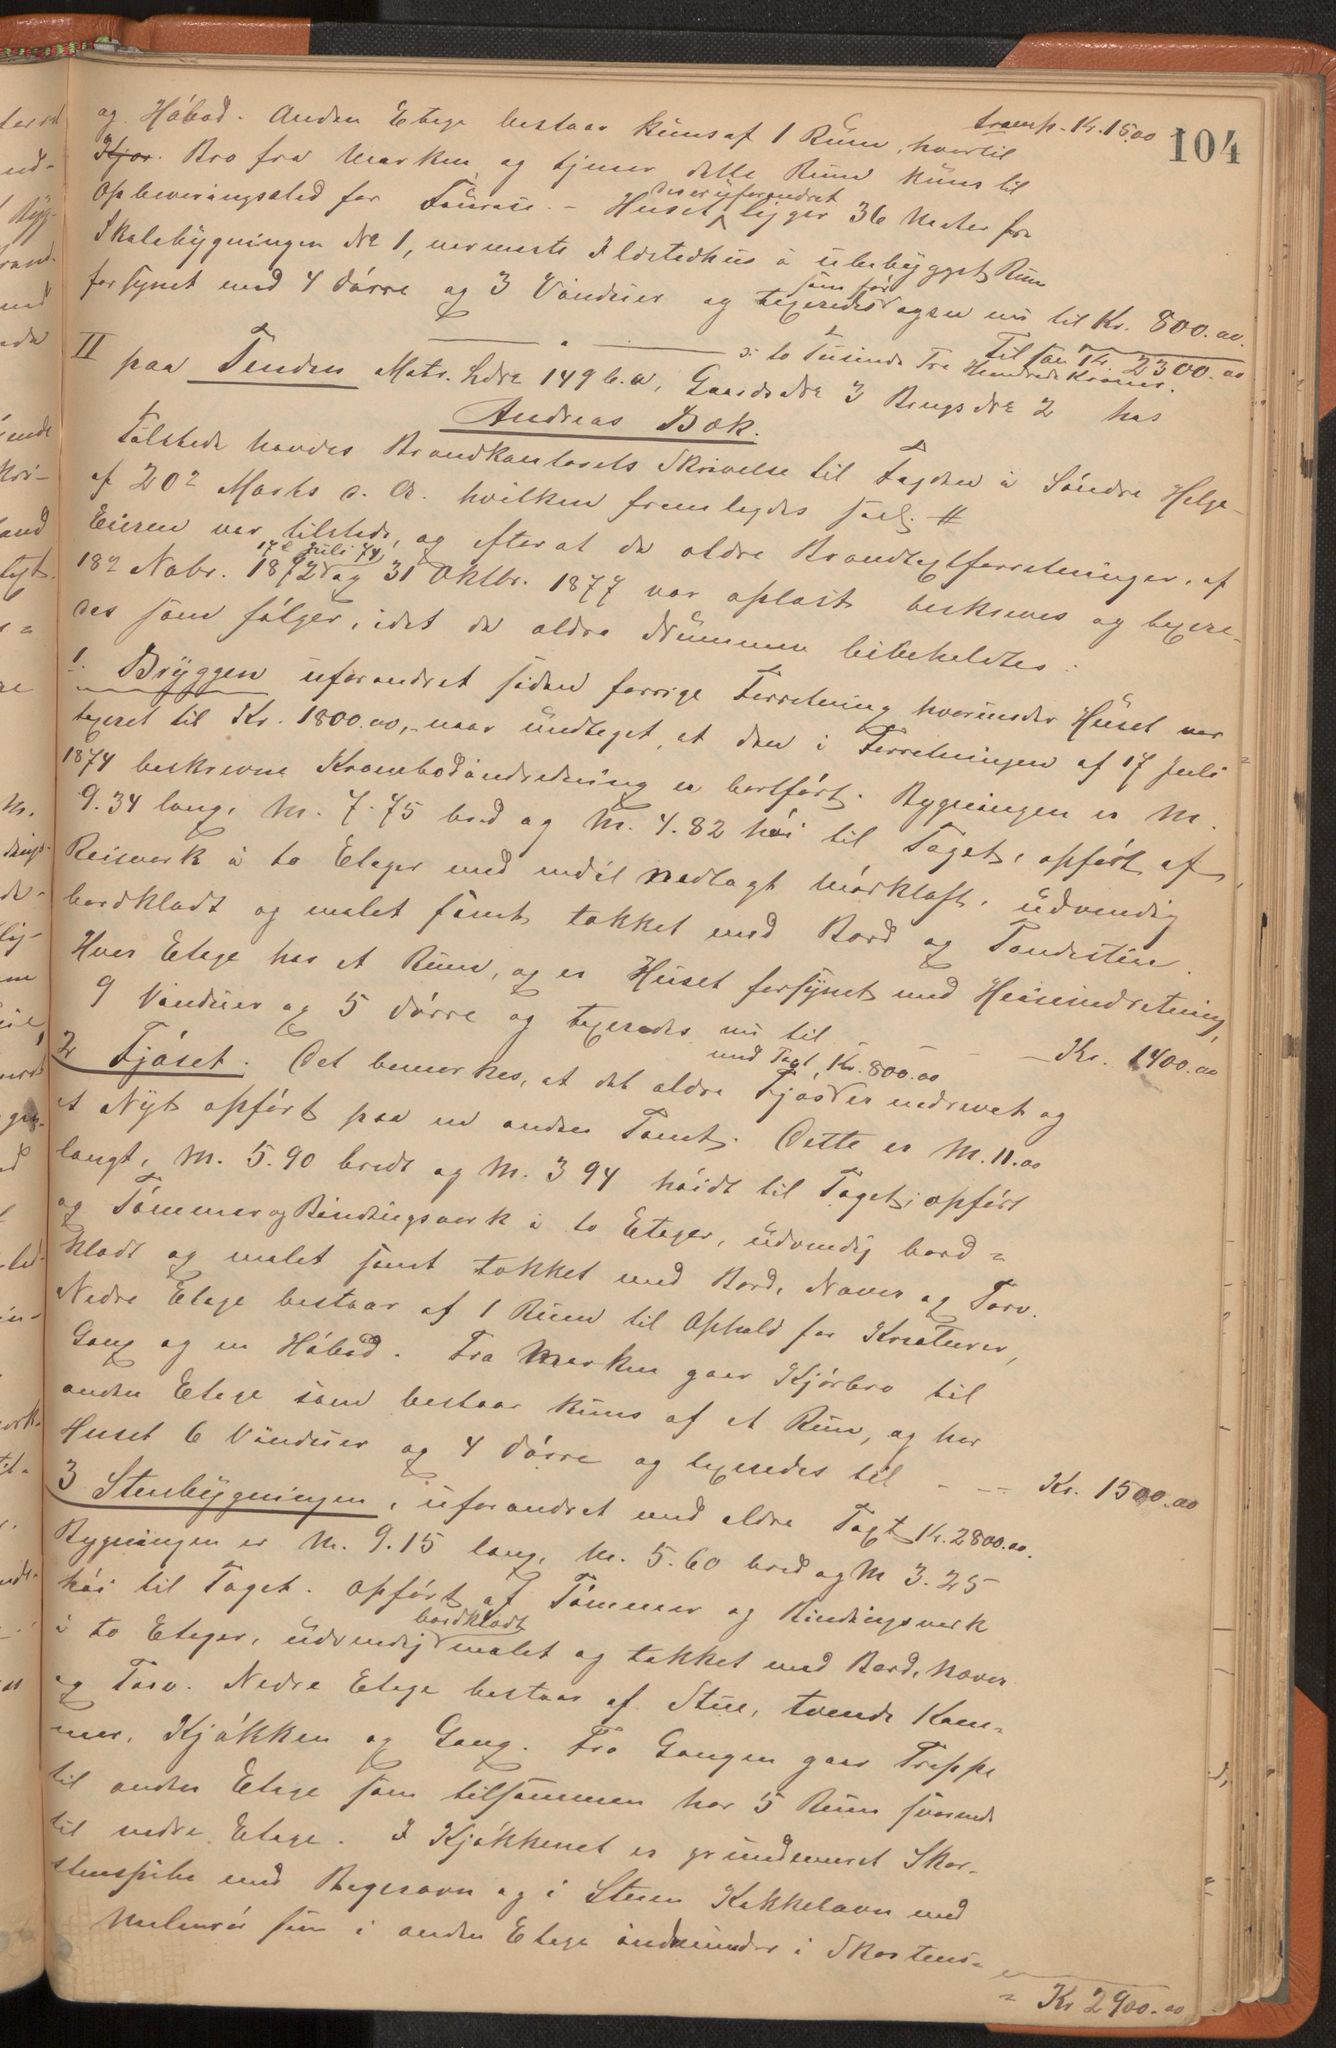 transp. Kr. 1500
104
og Høbod. Anden Etage bestaar kuns af 1 Rum, hvortil
Kjør. Bro fra Marken og tjener dette Rum kuns til
Opbevaringssted for Fourase. - Huset ligger 36 Meter fra
Skolebygningen No 1, nermeste Ildstedhus à ubebygget Rum
forsynet med 4 Dørre og 3 Vinduer og taxeredes som før ogsaa nu til Kr. 800.00.
Tilsam Kr. 2300.00
ɔ: to Tusinde Tre Hundrede Kroner.
II paa Tenden Matr. Ldre 149 b. a, Gaards No 3 Brugs No 2 has
Andreas Bæk.
Tilstede havdes Brandkantorets Skrivelse til Fogden i Søndre Helge-
af 20de Marts d. A. hvilken fremlagdes saal. #
Eieren var tilstede, og efterat de ældre Brandtaxtforretninger, af
18de Nobr. 1872 17de Juli 74 og 31 Oktbr. 1877 var oplæst beskreves og taxere-
des som følger, idet de ældre Nummere bibeholdtes:
1. Bryggen uforandret siden forrige Forretning hvorunder Huset var
taxeret til Kr. 1800.00, naar undtaget, at den i Forretningen af 17 Juli
1874 beskrevne Krambodindredning er bortført. Bygningen er M.
9.34 lang, M. 7.75 bred og M. 4.82 høi til Taget, opført af
Reisverk i to Etager med indil nedlagt Mørkloft, udvendig
bordklædt og malet samt tækket med Bord og Pandesten.
Hver Etage har et Rum, og er Huset forsynet med Heiseindretning,
9 Vinduer og 5 Dørre og taxeredes nu til - - - Kr. 1400.00
2 Fjøset. Det bemerkes, at det ældre Fjøs med Taxt Kr. 800.00 er nedrevet og
et Nyt opført paa en anden Tomt. Dette er M. 11.00
langt, M. 5.90 bredt og M. 3 94 høidt til Taget, opført
og Tømmer og Bindingsverk i to Etager, udvendig bord=
klædt og malet samt tækket med Bord, Næver og Torv.
Nedre Etage bestaar af 1 Rum til Ophold for Kreaturer,
Gang og en Høbod. Fra Marken gaar Kjørbro til
anden Etage som bestaar kuns af et Rum, og har
Huset 6 Vinduer og 4 Dørre og taxeredes til - - - Kr. 1500.00
3 Stuebygningen, uforandret med ældre Taxt Kr. 2800.00.
Bygningen er M. 9.15 lang, M. 5.60 bred og M 3.25
høi til Taget. Opført af Tømmer og Bindingsverk
i to Etager, udvendig bordklædt malet og tækket med Bord, Næver
og Torv. Nedre Etage bestaar af Stue, tvende Kam=
mer, Kjøkken og Gang. Fra Gangen gaar Trappe
til anden Etage som tilsammen har 5 Rum svarende
til nedre Etage. I Kjøkkenet er grundmuret Skor-
stenspibe med Bagerovn og i Stuen Kakkelovn med
som i anden Etage indmunder i Skorstens=
= Kr 2900.00